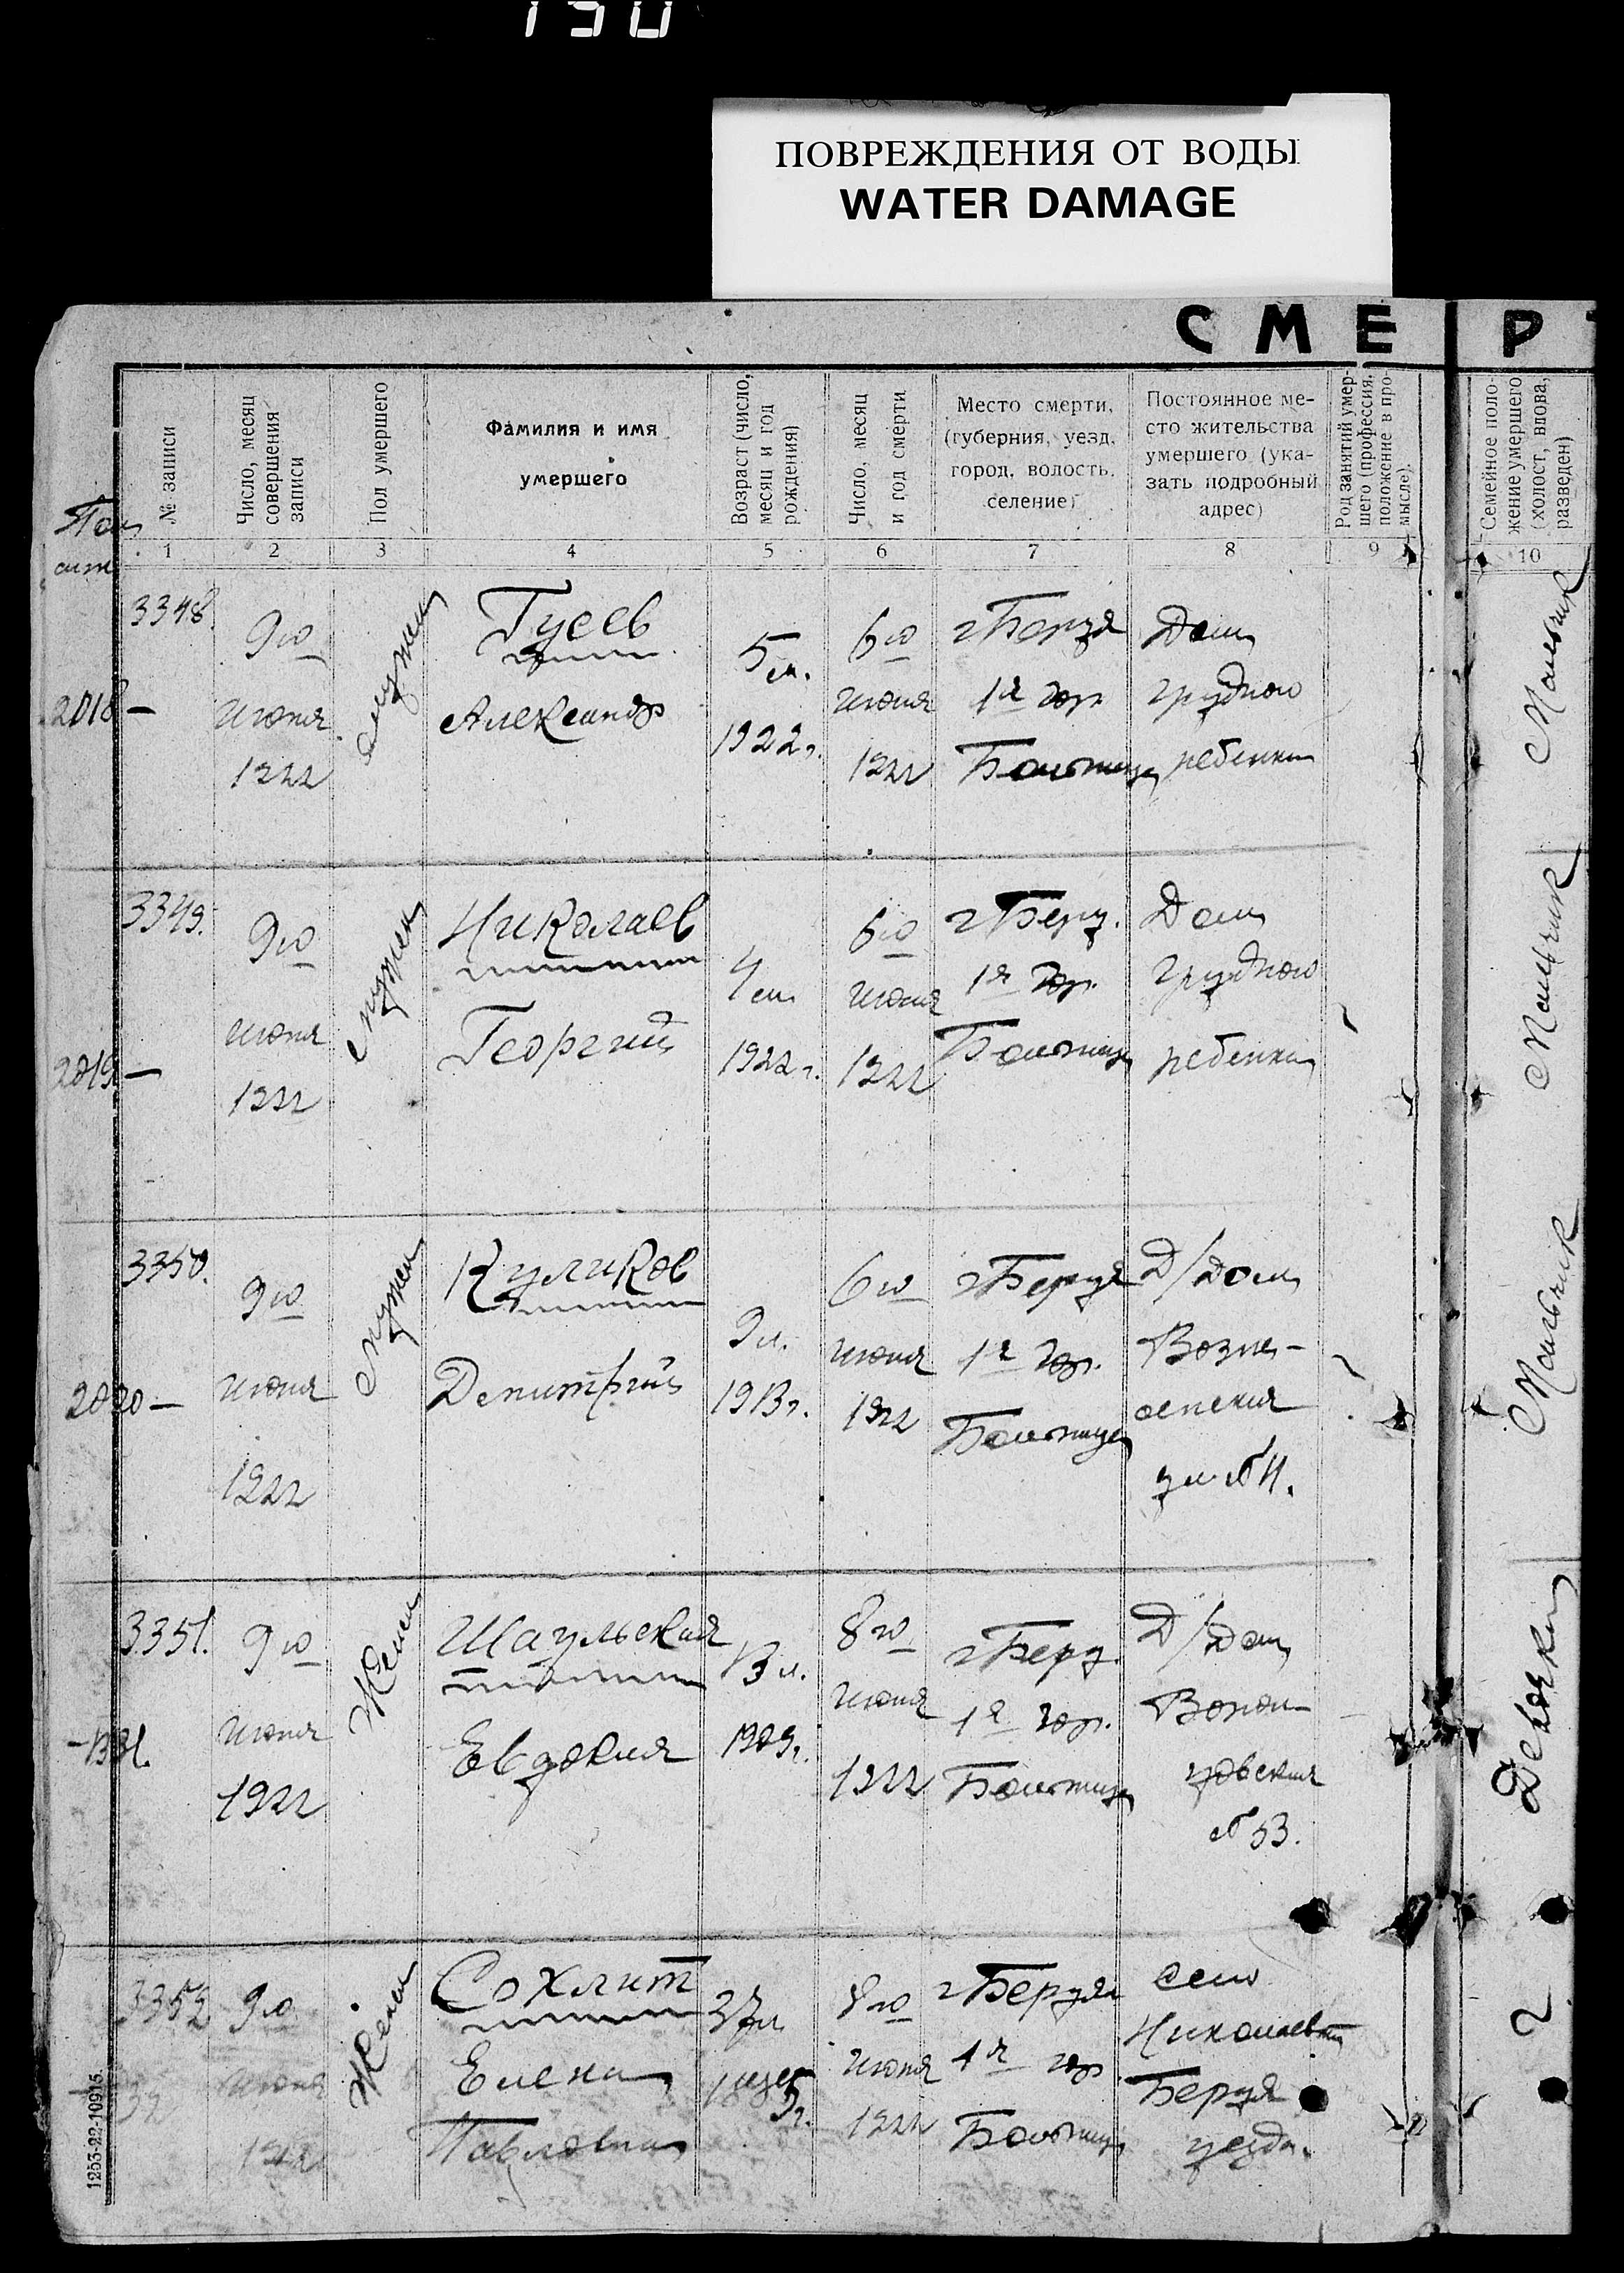 ПОВРЕЖДЕНИЯ ОТ ВОДЫ
WATER DAMAGE
СМЕР
№ записи
Число, месяц
совершения
записи
Пол умершего
Фамилия и имя
умершего
Возраст (число,
месяц и год
рождения)
Число, месяц
и год смерти
Место смерти,
(губерния, уезд,
город, волость,
селение)
Постоянное ме-
сто жительства
умершего (ука-
зать подробный
адрес)
Род занятий умер-
шего (профессия,
положение в про-
мысле)
Семейное поло-
жение умершего
(холост, вдова,
разведен)
1 2 3 4 5 6 7 8 9 10
3348.
2018 —
9го
июня
1922
мужск
Гусев
Александр
5 м.
1922 г.
6го
июня
1922
г Берд
1я гор
Больница
Дом
грудного
ребенка
Мальчик
3349.
2019 —
9го
июня
1922
мужск
Николаев
Георгий
4 м
1922 г.
6го
июня
1922
г Берд.
1я гор.
Больница
Дом
грудного
ребенка
Мальчик
3350.
2020 —
9го
июня
1922
мужск
Куликов
Дмитрий
9 л.
1913 г.
6го
июня
1922
г Берд
1я гор.
Больница
Д/дом
Возне-
сенская
Мальчик
3351.
9го
июня
1922
Женск
Шаульская
Евдокия
13 л.
1909 г.
8го
июня
1922
г Берд.
1я гор.
Больница
Д/дом
Ворон-
цовская
№ 53.
Девочка
3352
32
9го
июня
1922
Женск
Сохлит
Елена
Павловна
37 л
8го
июня
1922
г Берд
1я гор
Больница
село
Николаевка
Бердя
уезда.
1253-22-10915